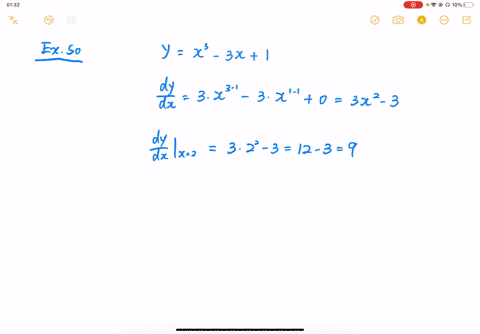 01:32 10%
Ex.50 y = x³ - 3x + 1
dy/dx = 3·x³⁻¹ - 3·x¹⁻¹ + 0 = 3x² - 3
dy/dx|ₓ₌₂ = 3·2² - 3 = 12 - 3 = 9